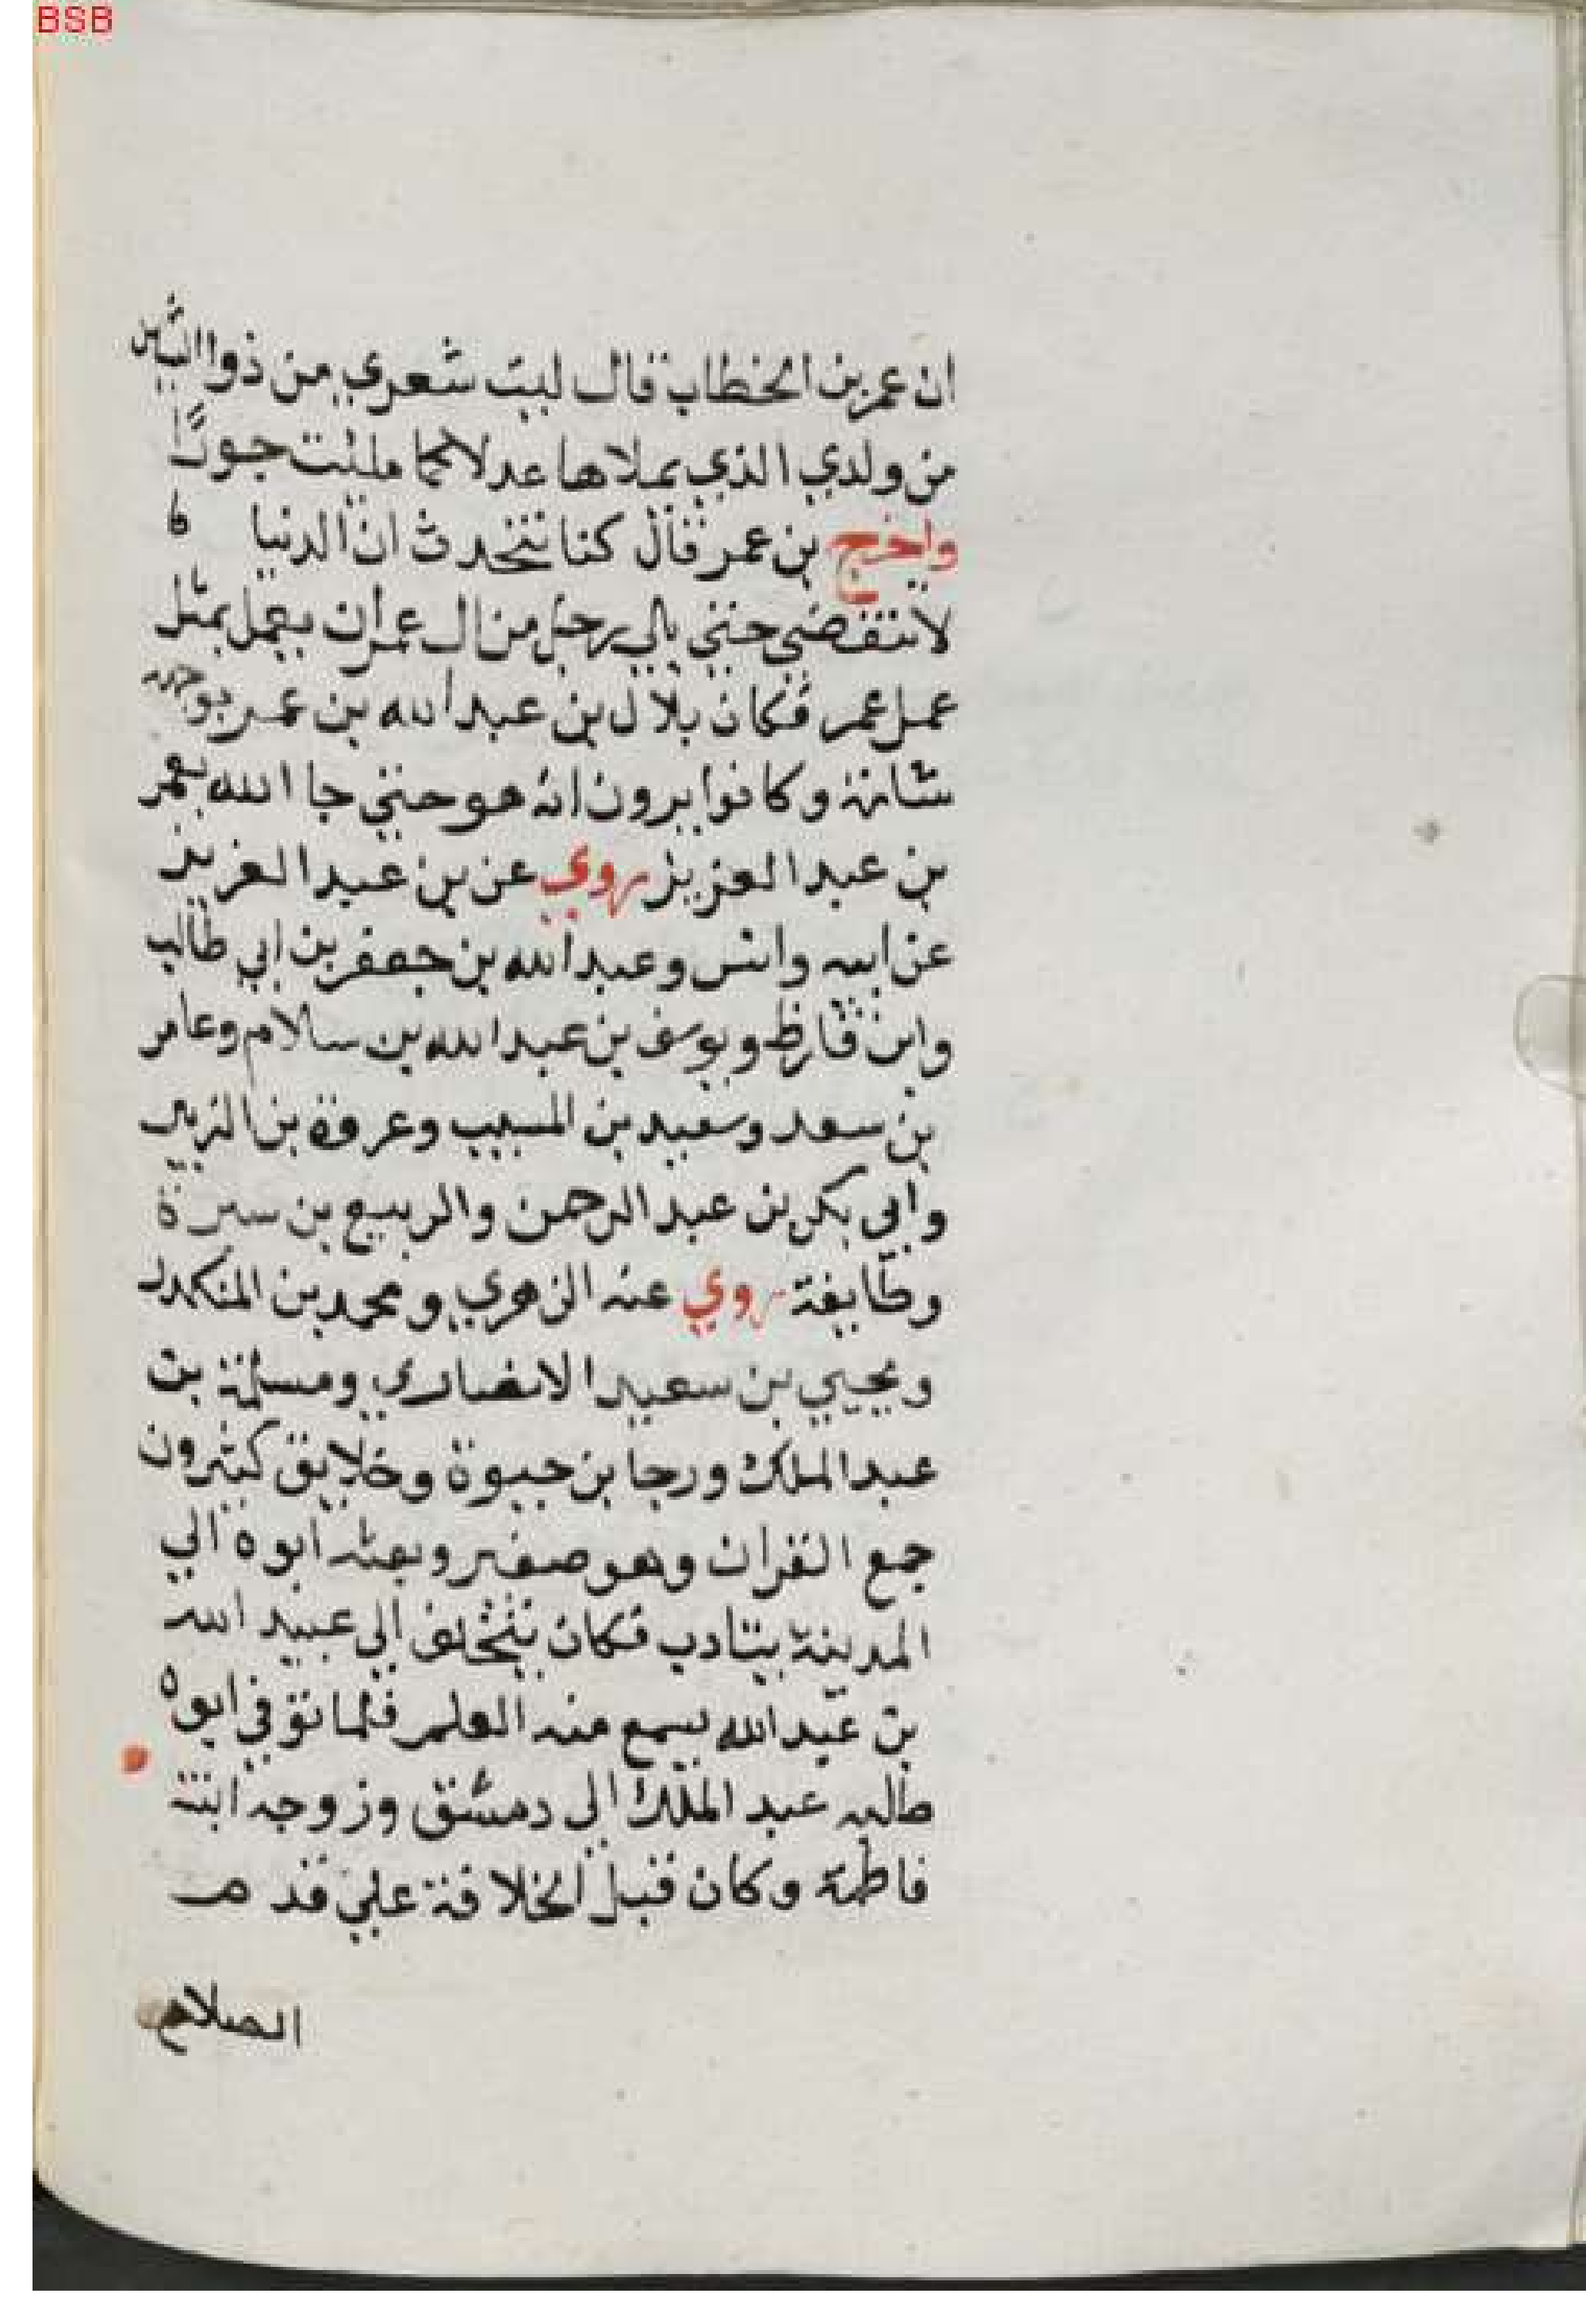 BSB
ان عمر بن الخطاب قال ليت شعري من ذوا الشين
من ولدي الذي يملاها عدلا كما ملئت جورًا
واخرج بن عمر قال كنا نتحدث ان الدنيا
لا تنقضي حتى يلي رجل من ال عمران يعمل بمثل
عمل عمر فكان بلال بن عبد الله بن عمر بوجهه
شانة وكانوا يرون انه هو حتى جا الله بعمر
بن عبد العزيز روي عن بن عبد العزيز
عن ابيه وانس وعبد الله بن جعفر بن ابي طالب
وابن قارظ ويوسف بن عبد الله بن سلام وعامر
بن سعد وسعيد بن المسيب وعروة بن الزبير
وابي بكر بن عبد الرحمن والربيع بن سبرة
وطايفة روي عنه الزهري ومحمد بن المنكدر
ويحيي بن سعيد الانصاري ومسلمة بن
عبد الملك ورجا بن حيوة وخلايق كثيرون
جمع القران وهو صغير وبعثه ابوه الي
المدينة يتادب فكان يتخلف الي عبيد الله
بن عبد الله يسمع منه العلم فلما توفي ابوه
طلبه عبد الملك الى دمشق وزوجه ابنته
فاطمة وكان قبل الخلافة علي قدم
الصلاح